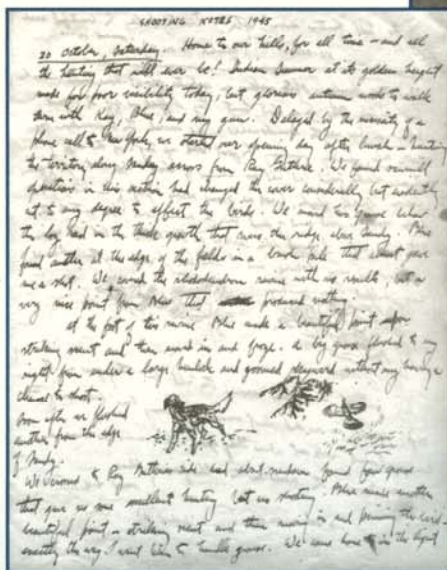 SHOOTING NOTES 1945
20 October, Saturday. Home to our hills, for all time — and all
the hunting that will ever be! Indian Summer at its golden height
made for poor visibility today, but glorious autumn woods to walk
them with Kay, Blue, and my gun. Delayed by the necessity of a
phone call to New York, we started our opening day after lunch — hunting
the territory along Sandy across from Ray Guthrie. We found sawmill
operations in this section had changed the cover considerably but
not to any degree to effect the birds. We moved two grouse
in the thick growth that the ridge above Sandy. Blue
found another at the edge of the fields in a brush pile that almost gave
me a shot. We the rhododendron ravine with no results, but a
very nice point from Blue that produced nothing.
At the foot of this ravine Blue made a beautiful point upon
striking scent and then moved in and froze. A big grouse flushed to my
right from under a large and without my having a
chance to shoot.
Soon after we flushed
another from the edge
of Sandy.
We crossed to Ray Guthrie's side and about found four grouse
that gave us some excellent hunting but no shooting. Blue made another
beautiful point — striking scent and then moving in and pinning the bird
exactly the way I want him to handle grouse. We came home in the